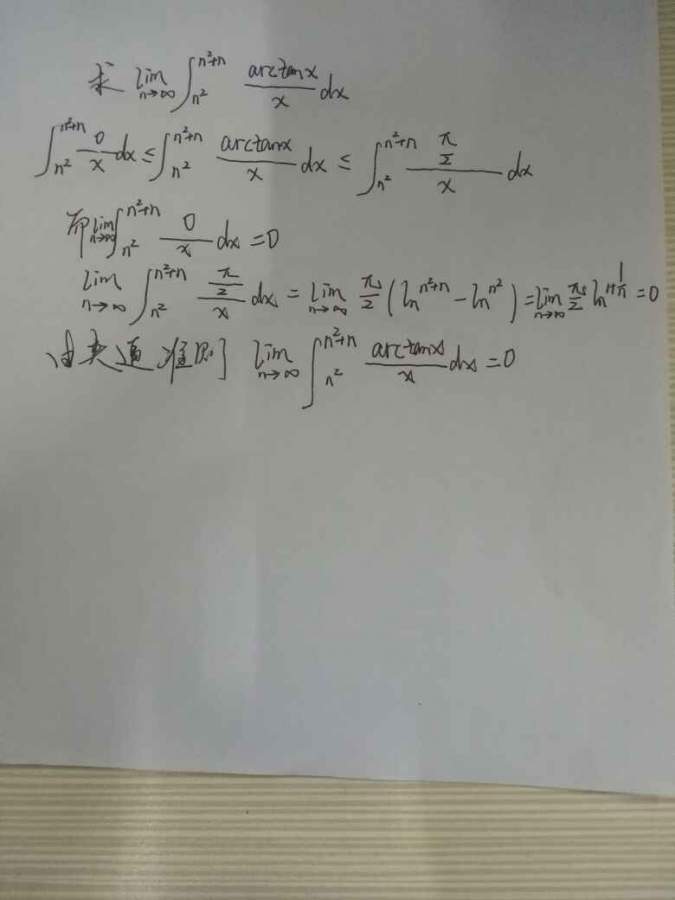 求 lim n→∞ ∫_{n²}^{n²+n} arctanx/x dx
∫_{n²}^{n²+n} 0/x dx ≤ ∫_{n²}^{n²+n} arctanx/x dx ≤ ∫_{n²}^{n²+n} (π/2)/x dx
而 lim n→∞ ∫_{n²}^{n²+n} 0/x dx = 0
lim n→∞ ∫_{n²}^{n²+n} (π/2)/x dx = lim n→∞ π/2 (ln^{n²+n} - ln^{n²}) = lim n→∞ π/2 ln^{1+1/n} = 0
由夹逼准则 lim n→∞ ∫_{n²}^{n²+n} arctanx/x dx = 0